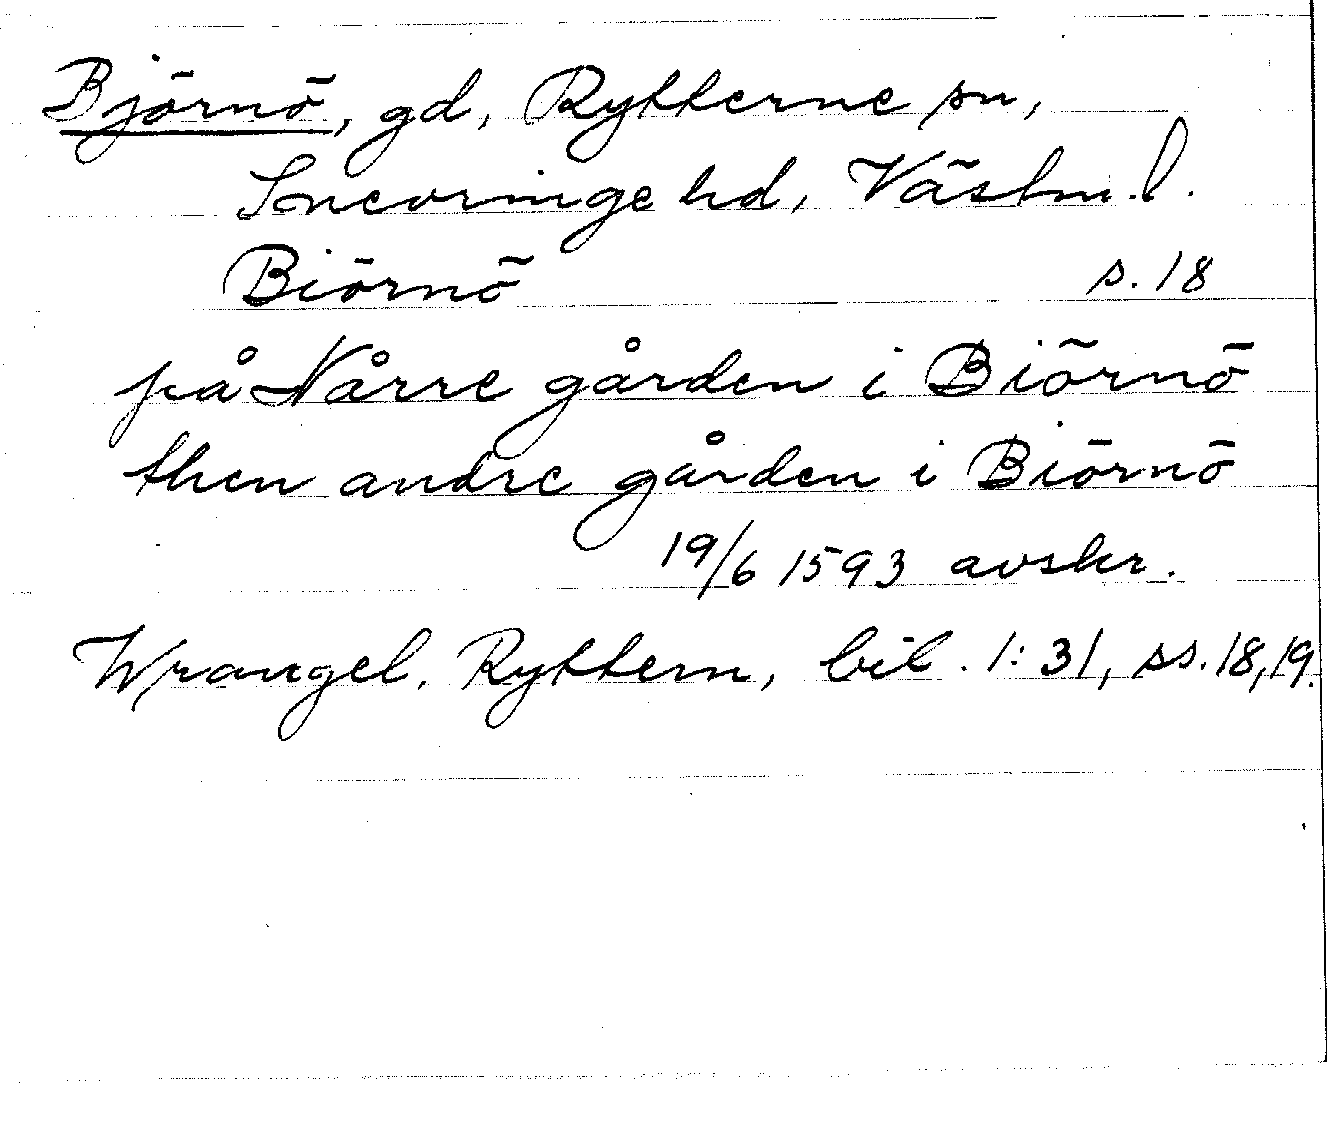 Björnö, gd, Rytterne sn,
Snevringe hd, Västm. l.
Biörnö s. 18
på Nårre gården i Biörnö
then andre gården i Biörnö
19/6 1593 avskr.
Wrangel. Ryttern, bil. 1:31, ss. 18, 19.